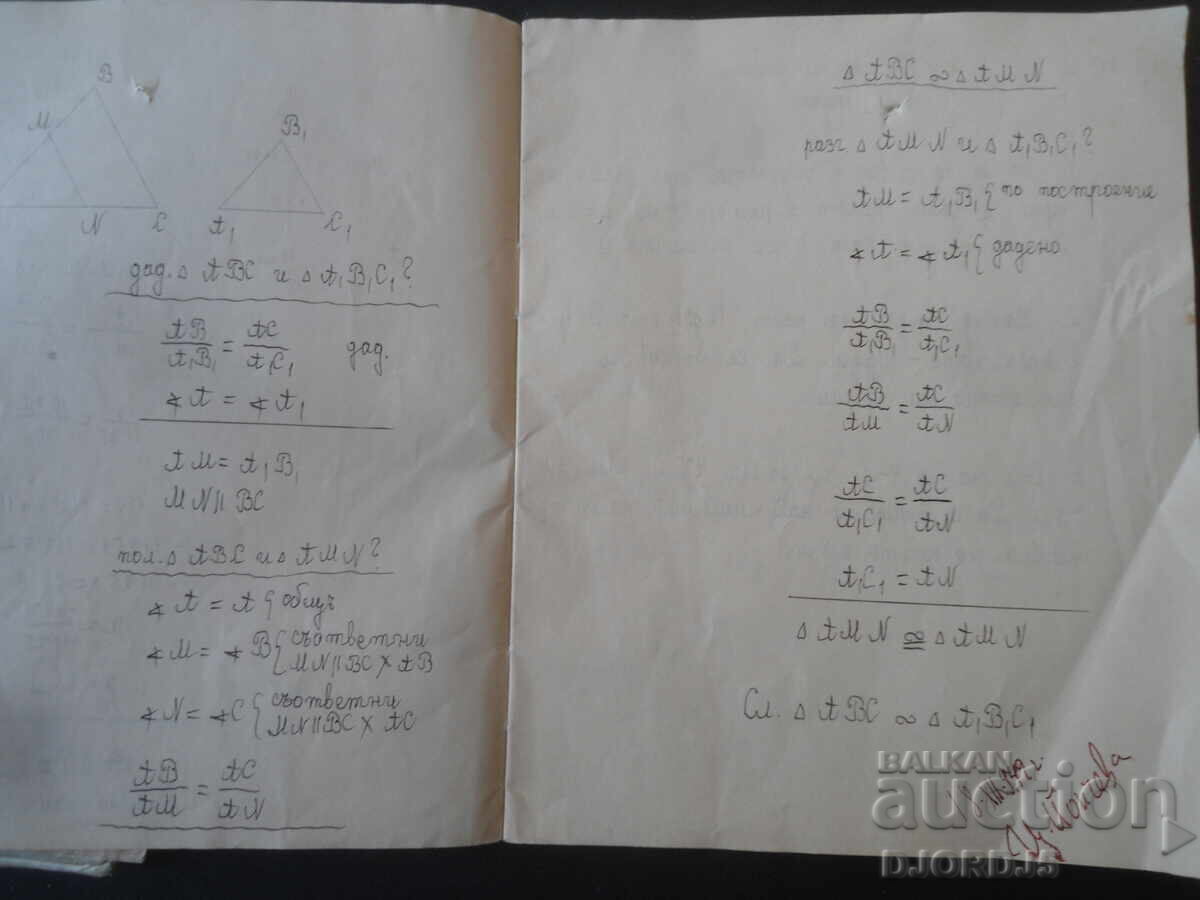 B
M
B₁
N C A₁ C₁
дад. △ ABC и △ A₁B₁C₁?
AB/A₁B₁ = AC/A₁C₁ дад.
∢A = ∢A₁
AM = A₁B₁
MN || BC
пол. △ ABC и △ AMN?
∢A = A { общъ
∢M = ∢B { съответни
MN || BC × AB
∢N = ∢C { съответни
MN || BC × AC
AB/AM = AC/AN
△ ABC ∞ △ AMN
разг. △ AMN и △ A₁B₁C₁?
AM = A₁B₁ { по построение
∢A = ∢A₁ { дадено
AB/A₁B₁ = AC/A₁C₁
AB/AM = AC/AN
AC/A₁C₁ = AC/AN
A₁C₁ = AN
△ AMN ≅ △ AMN
Сл. △ ABC ∞ △ A₁B₁C₁
BALKAN
auction
DJORDJ5